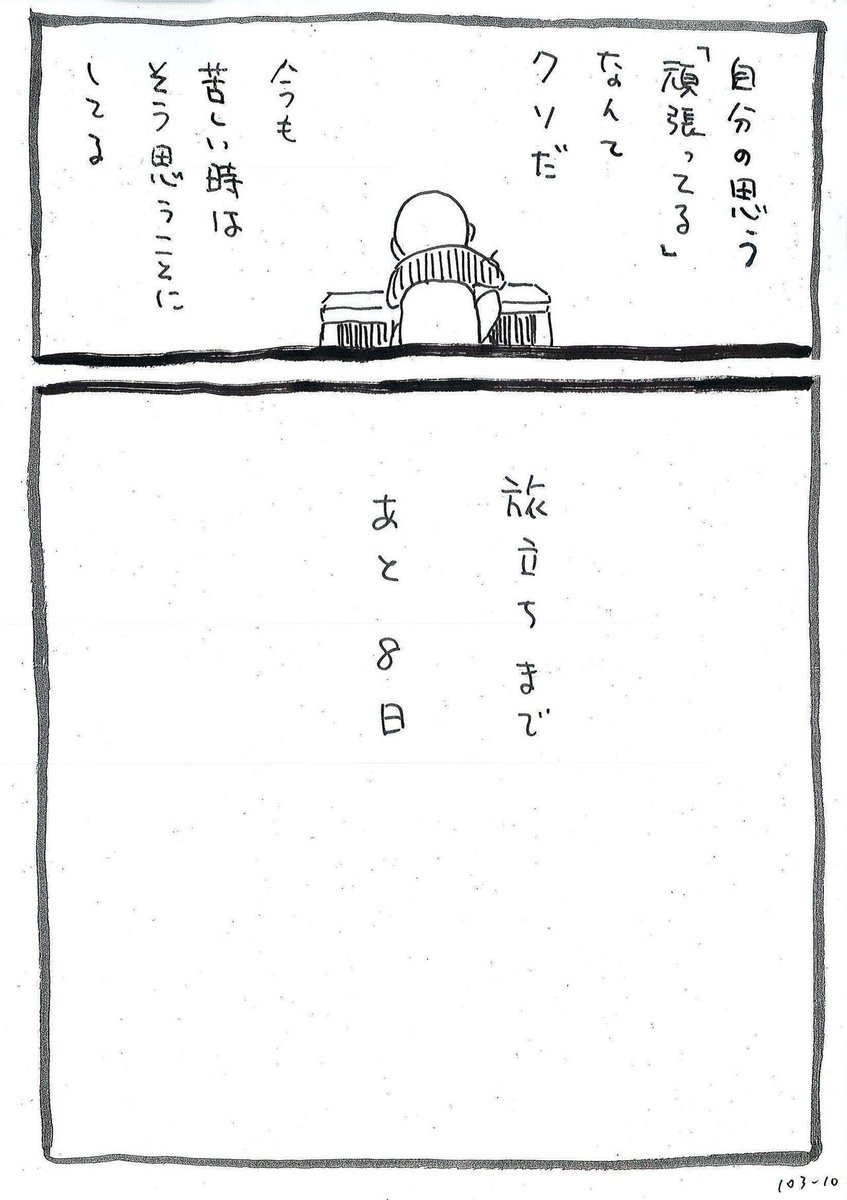 自分の思う
「頑張ってる」
なんて
クソだ
今も
苦しい時は
そう思うことに
してる
旅立ちまで
あと8日
103-10